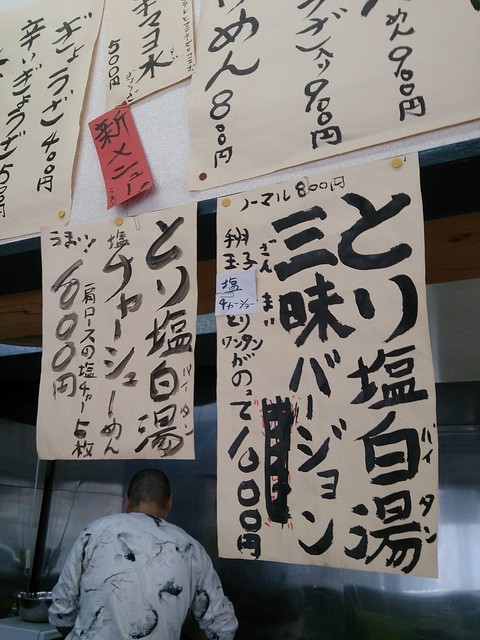 めん 900円
入り 900円
めん 800円
マヨ水
500円
ぎょうざ 400円
辛いぎょうざ 500円
新メニュー
ノーマル 800円
とり塩白湯
パイタン
三昧バージョン
ざんまい
玉子
塩
チャーシュー
とりワンタンがのって
1000円
とり塩白湯
パイタン
塩チャーシューめん
肩ロースの塩チャー5枚
うまい!
1000円